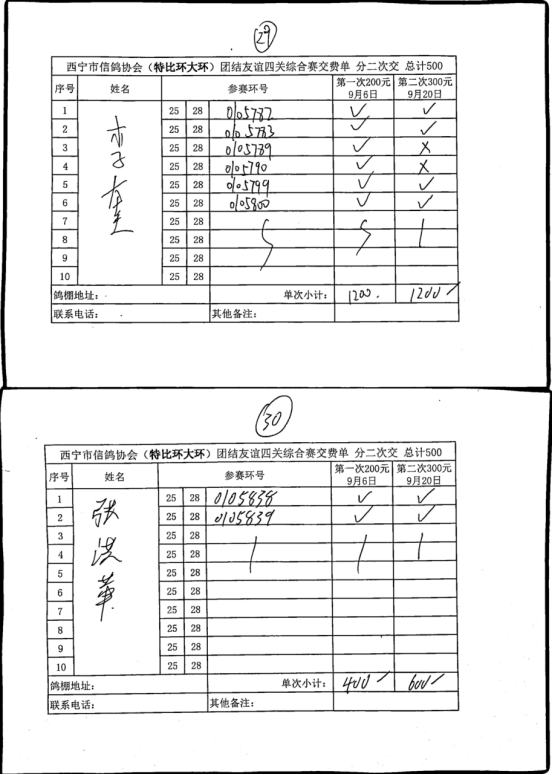 29
西宁市信鸽协会（特比环大环）团结友谊四关综合赛交费单 分二次交 总计500
序号 姓名 参赛环号 第一次200元 9月6日 第二次300元 9月20日
1 25 28 0105782 ✓ ✓
2 25 28 0105783 ✓ ✓
3 25 28 0105789 ✓ ×
4 25 28 0105790 ✓ ×
5 25 28 0105799 ✓ ✓
6 25 28 0105800 ✓ ✓
7 25 28
8 25 28
9 25 28
10 25 28
鸽棚地址： 单次小计： 1200. 1200
联系电话： 其他备注：
30
西宁市信鸽协会（特比环大环）团结友谊四关综合赛交费单 分二次交 总计500
序号 姓名 参赛环号 第一次200元 9月6日 第二次300元 9月20日
1 张洪华 25 28 0105838 ✓ ✓
2 25 28 0105839 ✓ ✓
3 25 28
4 25 28
5 25 28
6 25 28
7 25 28
8 25 28
9 25 28
10 25 28
鸽棚地址： 单次小计： 400 600
联系电话： 其他备注：